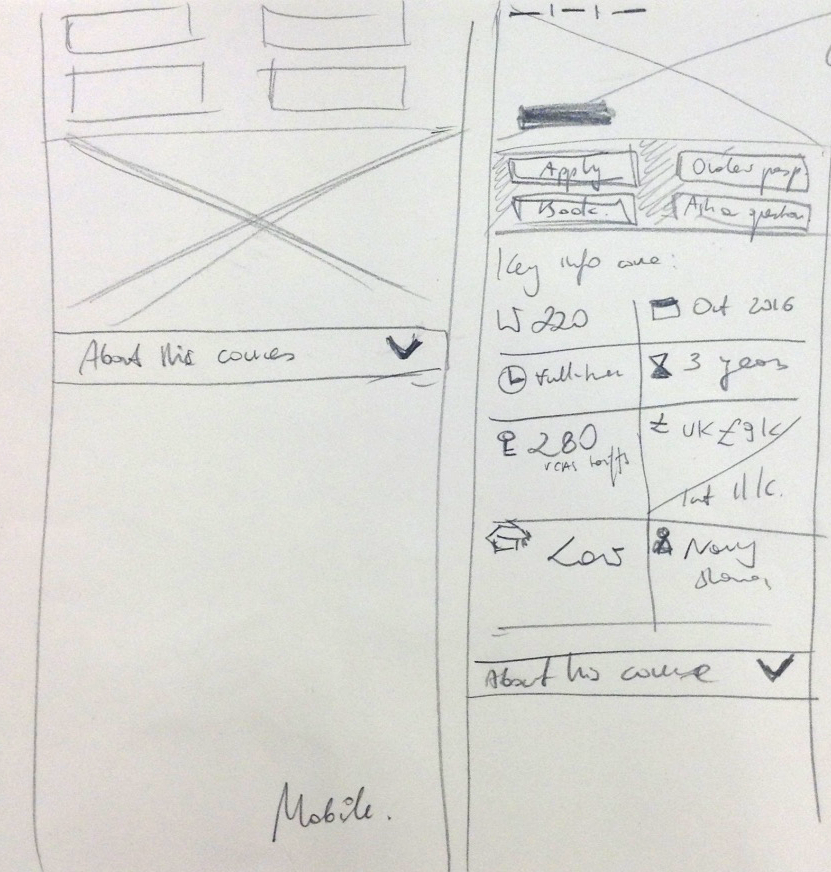 About this course
Mobile.
Apply
Order prosp.
Book
Ask a question
Key info
W220
Oct 2016
Full-time
3 years
280
UCAS tariffs
£ UK £9k
Int 11k.
Law
About this course